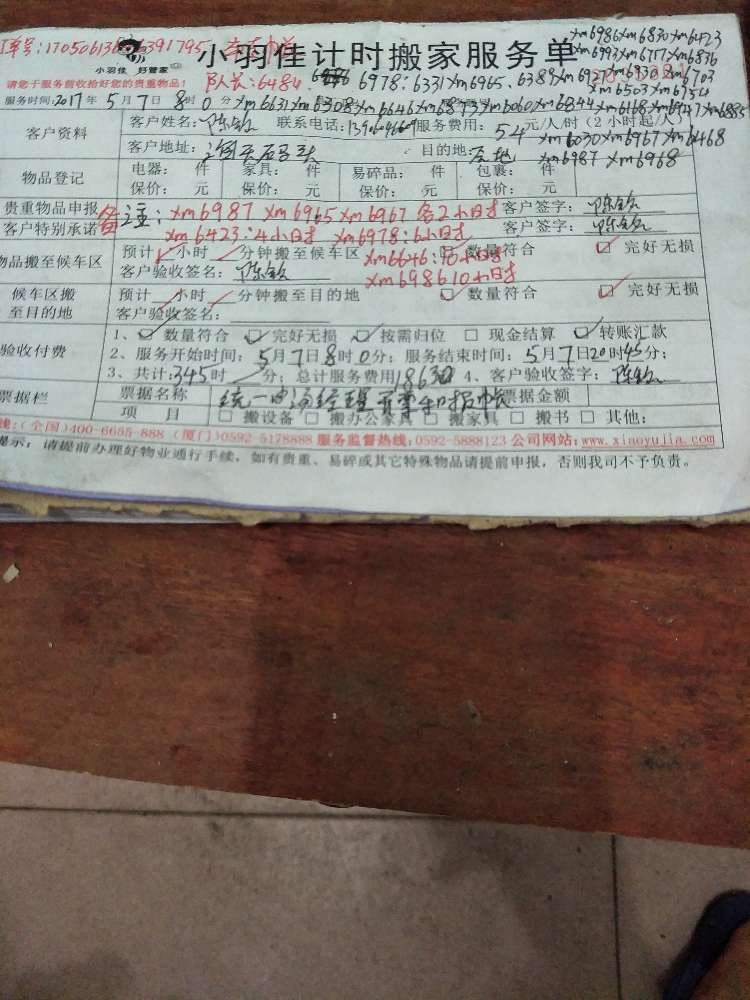 小羽佳计时搬家服务单
小羽佳 好管家
请您于服务前收拾好您的贵重物品！
队长：6484 6978：6331 xm6965
xm6986 xm6830 xm6423
xm6993 xm6757 xm6836
xm6503 xm6754
服务时间2017年5月7日8时0分 xm6631 xm6308 xm6646
客户资料
客户姓名：陈钦 联系电话： 服务费用：54元/人/时（2小时起/人）
xm6030 xm6967 xm6468
客户地址： 目的地：
xm6987 xm6968
物品登记
电器： 件 家具： 件 易碎品： 件 包裹： 件
保价： 元 保价： 元 保价： 元 保价： 元
贵重物品申报 备注：xm6987 xm6965 xm6967 各2小时 客户签字：陈钦
客户特别承诺 xm6423：4小时 xm6978：6小时 客户签字：陈钦
物品搬至候车区
预计 小时 分钟搬至候车区 xm6646：10小时 数量符合 完好无损
客户验收签名：陈钦 xm6986 10小时
候车区搬至目的地
预计 小时 分钟搬至目的地 数量符合 完好无损
客户验收签名：
验收付费
1、 数量符合 完好无损 按需归位 现金结算 转账汇款
2、服务开始时间：5月7日8时0分；服务结束时间：5月7日20时45分；
3、共计：345时 分；总计服务费用18630 4、客户验收签字：陈钦
票据栏
票据名称 统一 票据金额
项 目 搬设备 搬办公家具 搬家具 搬书 其他：
线：（全国）400-6655-888（厦门）0592-5178888 服务监督热线：0592-5888123 公司网站：www.xiaoyujia.com
提示：请提前办理好物业通行手续，如有贵重、易碎或其它特殊物品请提前申报，否则我司不予负责。